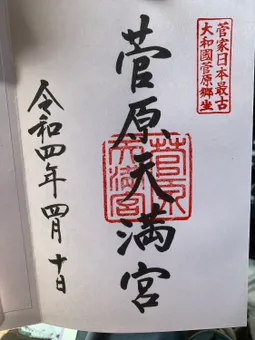 菅家日本最古
大和國菅原郷坐
菅原天満宮
菅原
天満宮
令和四年四月十日